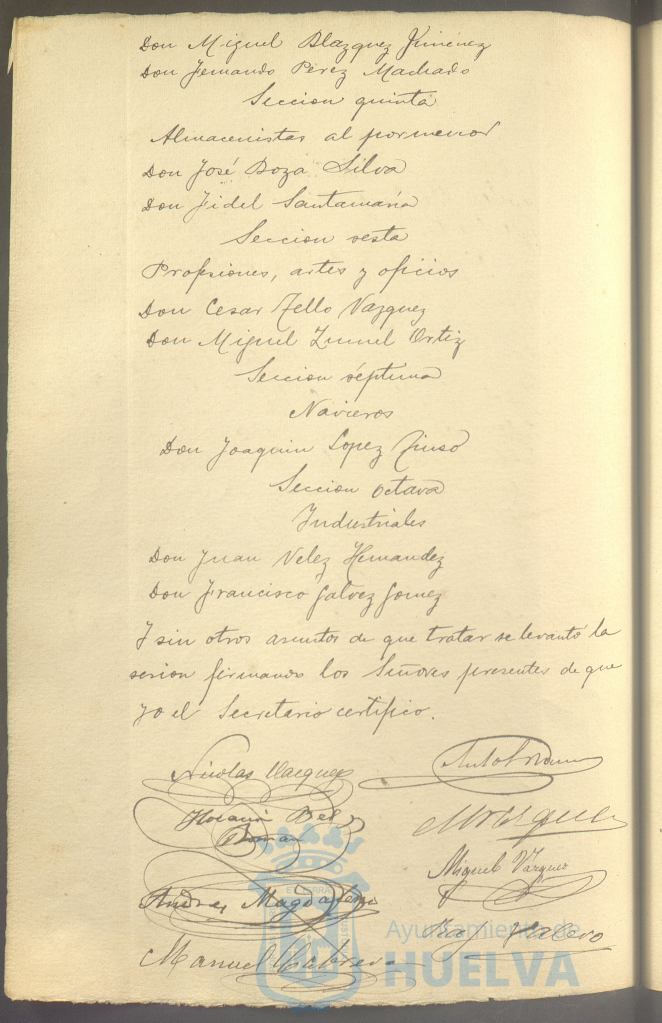 Don Miguel Blazquez Jimenez
Don Fernando Perez Machado
Seccion quinta
Almacenistas al pormenor
Don José Boza Silva
Don Fidel Santamaria
Seccion sesta
Profesiones, artes y oficios
Don Cesar Tello Vazquez
Don Miguel Zunel Ortiz
Seccion séptima
Navieros
Don Joaquin Lopez
Seccion octava
Industriales
Don Juan Velez Hernandez
Don Francisco Galvez Gomez
Y sin otros asuntos de que tratar se levantó la
sesion firmando los Señores presentes de que
yo el Secretario certifico.
Nicolas Vazquez
Horacio Bel
Roman
Miguel Vazquez
Andres Magdaleno
Manuel Cabrera
Ayuntamiento de
HUELVA